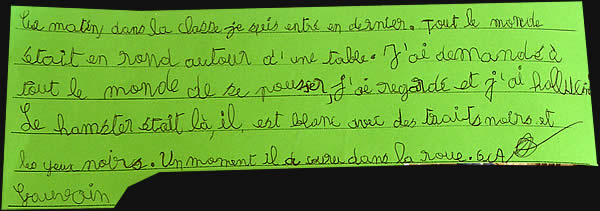 Ce matin, dans la classe je suis entré en dernier. Tout le monde
était en rond autour d'une table. J'ai demandé à
tout le monde de se pousser, j'ai regardé et j'ai halluciné
Le hamster était là, il est blanc avec des traits noirs et
les yeux noirs. Un moment il a couru dans la roue.
Gauvain